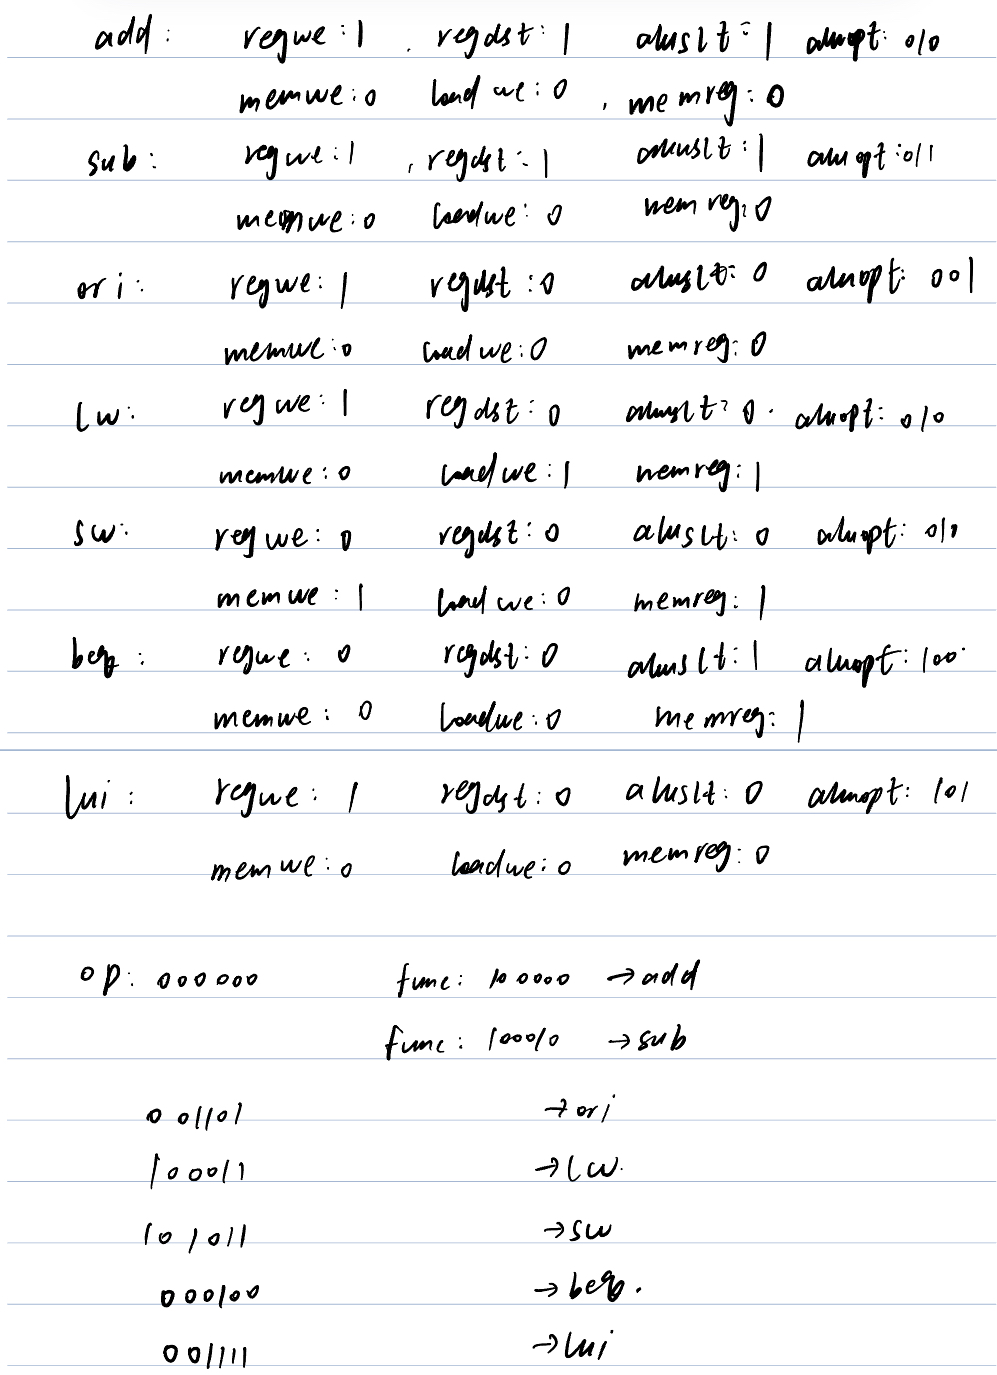 add: regwe:1 . regdst:1 aluslt:1 aluopt:010
memwe:0 loadwe:0 , memreg:0
sub: regwe:1 , regdst:1 aluslt:1 aluopt:011
memwe:0 loadwe:0 memreg:0
ori: regwe:1 regdst:0 aluslt:0 aluopt:001
memwe:0 loadwe:0 memreg:0
lw: regwe:1 regdst:0 aluslt:0. aluopt:010
memwe:0 loadwe:1 memreg:1
sw: regwe:0 regdst:0 aluslt:0 aluopt:010
memwe:1 loadwe:0 memreg:1
beq: regwe:0 regdst:0 aluslt:1 aluopt:100.
memwe:0 loadwe:0 memreg:1
lui: regwe:1 regdst:0 aluslt:0 aluopt:101
memwe:0 loadwe:0 memreg:0
op: 000000 func: 100000 →add
func: 100010 →sub
001101 →ori
100011 →lw.
101011 →sw
000100 →beq.
001111 →lui